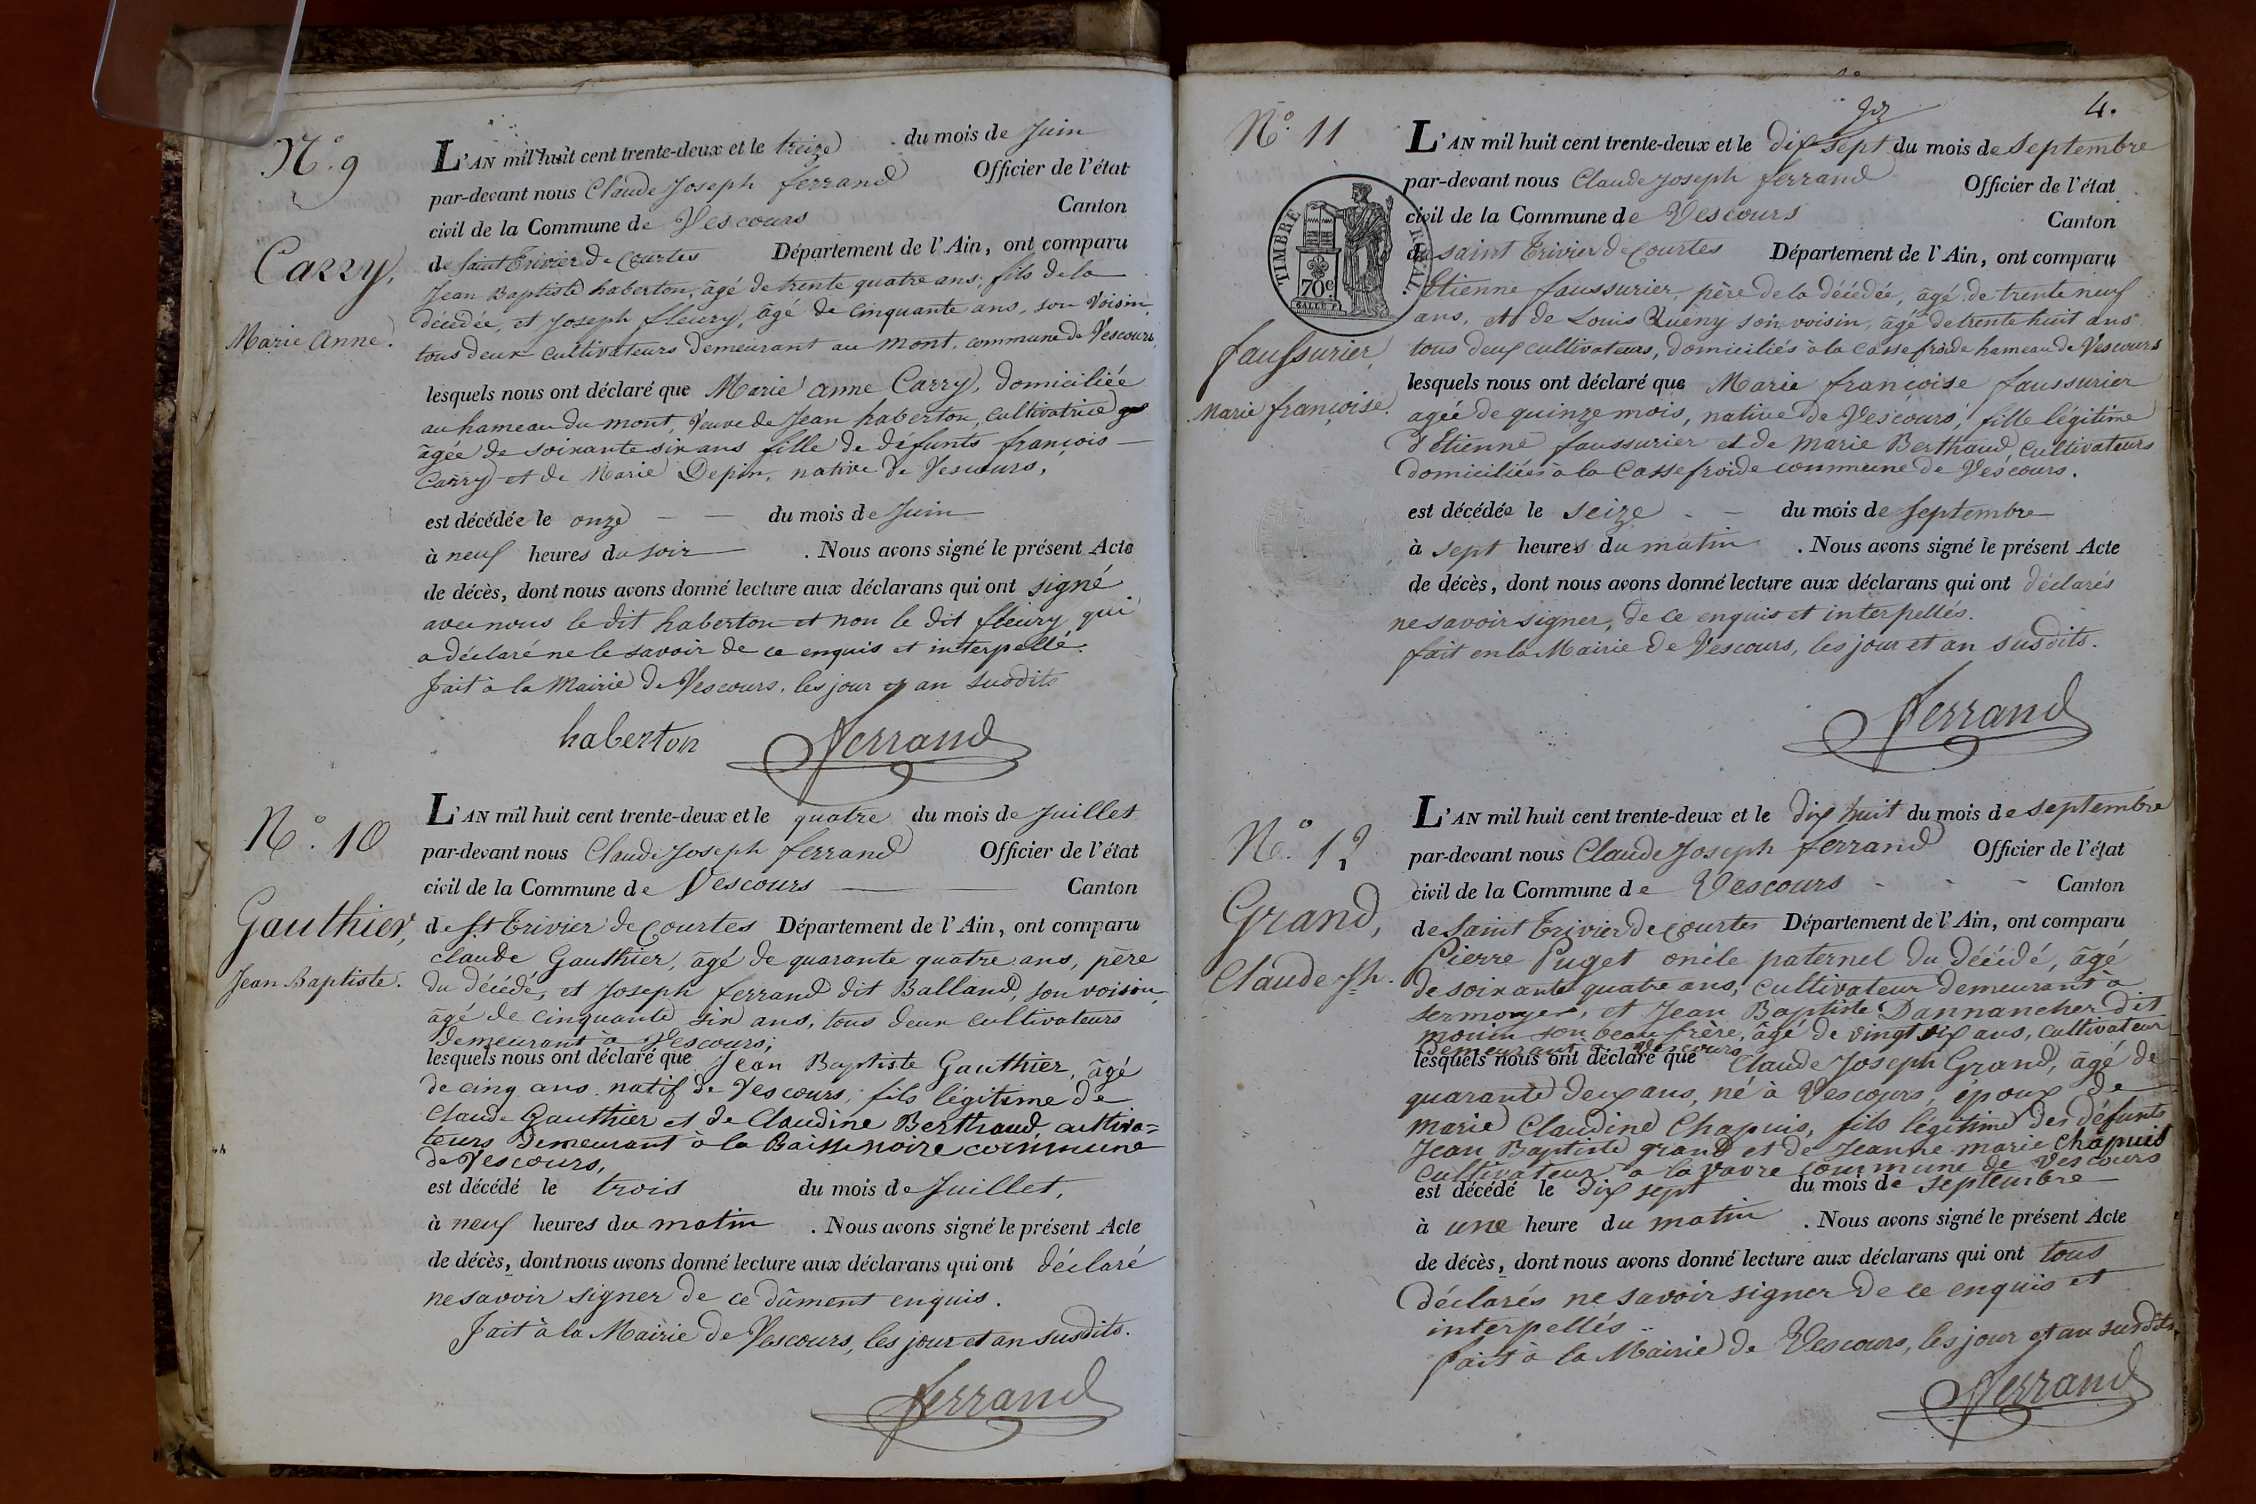 N.º 9
Carry,
Marie Anne.
L'AN mil huit cent trente-deux et le treize du mois de Juin
par-devant nous Claude Joseph ferrand Officier de l'état
civil de la Commune de Vescours Canton
de Saint Trivier de Courtes Département de l'Ain, ont comparu
Jean Baptiste haberton, âgé de trente quatre ans, fils de la
décédée, et Joseph fleury, âgé de cinquante ans, son voisin,
tous deux cultivateurs demeurant au mont, commune de Vescours,
lesquels nous ont déclaré que Marie anne Carry, domiciliée
au hameau du mont, veuve de Jean haberton, cultivatrice
âgée de soixante six ans fille de défunts françois
Carry et de Marie Depin, native de Vescours,
est décédée le onze du mois de Juin
à neuf heures du soir . Nous avons signé le présent Acte
de décès, dont nous avons donné lecture aux déclarans qui ont signé
avec nous le dit haberton et non le dit fleury qui
a déclaré ne le savoir de ce enquis et interpellé.
fait à la Mairie de Vescours, les jour et an susdits
haberton ferrand
N.º 10
Gauthier,
Jean Baptiste.
L'AN mil huit cent trente-deux et le quatre du mois de Juillet
par-devant nous Claude Joseph ferrand Officier de l'état
civil de la Commune de Vescours Canton
de St Trivier de Courtes Département de l'Ain, ont comparu
claude Gauthier, âgé de quarante quatre ans, père
du décédé, et Joseph ferrand dit Balland, son voisin,
âgé de cinquante six ans, tous deux cultivateurs
demeurant à Vescours;
lesquels nous ont déclaré que Jean Baptiste Gauthier, âgé
de cinq ans natif de Vescours, fils légitime de
Claude Gauthier et de Claudine Berthaud cultiva=
teurs demeurant à la Baisse noire commune
de Vescours,
est décédé le trois du mois de Juillet,
à neuf heures du matin . Nous avons signé le présent Acte
de décès, dont nous avons donné lecture aux déclarans qui ont déclaré
ne savoir signer de ce dûment enquis.
fait à la Mairie de Vescours, les jour et an susdits.
ferrand
4.
N.º 11
TIMBRE ROYAL
70c
faussurier,
Marie françoise.
L'AN mil huit cent trente-deux et le dix sept du mois de septembre
par-devant nous Claude Joseph ferrand Officier de l'état
civil de la Commune de Vescours Canton
de saint Trivier de Courtes Département de l'Ain, ont comparu
Etienne faussurier, père de la décédée, âgé de trente neuf
ans, et de Louis Quény son voisin, âgé de trente huit ans
tous deux cultivateurs, domiciliés à la casse froide hameau de Vescours
lesquels nous ont déclaré que Marie françoise faussurier
agée de quinze mois, native de Vescours, fille légitime
d'Etienne faussurier et de Marie Berthaud, cultivateurs
domiciliés à la Casse froide commune de Vescours.
est décédée le seize du mois de septembre
à sept heures du matin . Nous avons signé le présent Acte
de décès, dont nous avons donné lecture aux déclarans qui ont déclarés
ne savoir signer, de ce enquis et interpellés.
fait en la Mairie de Vescours, les jour et an susdits.
ferrand
N.º 12
Grand,
Claude Jh.
L'AN mil huit cent trente-deux et le dix huit du mois de septembre
par-devant nous Claude Joseph ferrand Officier de l'état
civil de la Commune de Vescours Canton
de Saint Trivier de Courtes Département de l'Ain, ont comparu
Pierre Puget oncle paternel du décédé, âgé
de soixante quatre ans, cultivateur demeurant à
sermoyer, et Jean Baptiste Dannancher dit
mouin son beau frère, âgé de vingt six ans, cultivateur
demeurant à Vescours
lesquels nous ont déclaré que Claude Joseph Grand, âgé de
quarante deux ans, né à Vescours, époux de
marie Claudine Chapuis, fils légitime des défunts
Jean Baptiste grand et de Jeanne marie Chapuis
Cultivateur à la vavre commune de Vescours
est décédé le dix sept du mois de septembre
à une heure du matin . Nous avons signé le présent Acte
de décès, dont nous avons donné lecture aux déclarans qui ont tous
déclarés ne savoir signer de ce enquis et
interpellés
fait à la Mairie de Vescours, les jour et an susdits.
ferrand